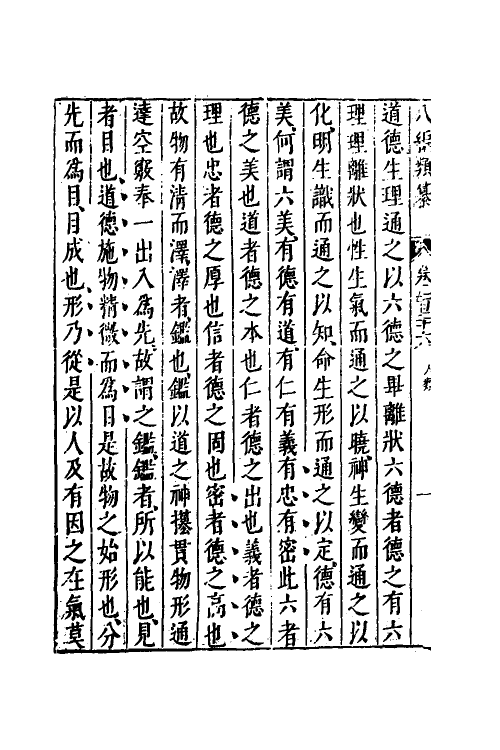 八編類纂 卷一百二十六 人類 一
道德生理通之以六德之畢離狀六德者德之有六
理理離狀也性生氣而通之以曉神生變而通之以
化明生識而通之以知命生形而通之以定德有六
美何謂六美有德有道有仁有義有忠有密此六者
德之美也道者德之本也仁者德之出也義者德之
理也忠者德之厚也信者德之固也密者德之高也
故物有清而澤澤者鑑也鑑以道之神摸貫物形通
達空竅奉一出入為先故謂之鑑鑑者所以能也見
者目也道德施物精微而為目是故物之始形也分
先而為目目成也形乃從是以人及有因之在氣莫